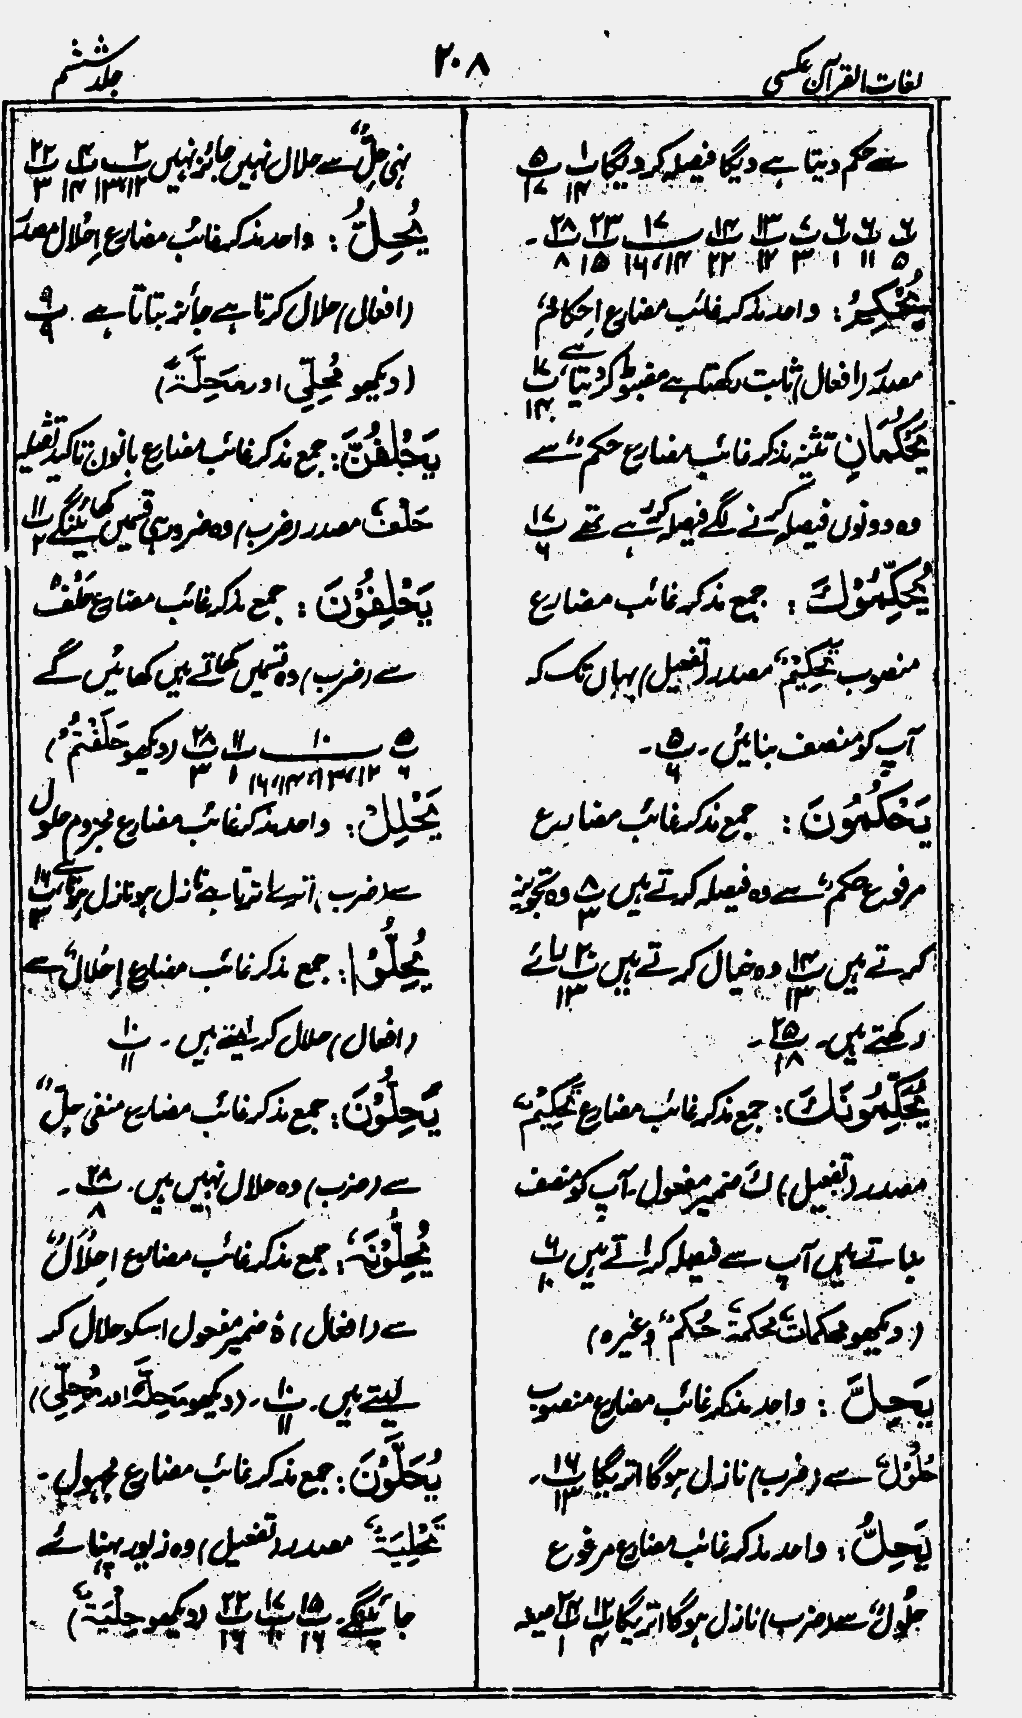 لغات القرآن عکسی
۲۰۸
جلد ششم
سے حکم دیتا ہے دیگا فیصلہ کر دیگا پ ۱ ۱۴ پ ۵ ۱۷
پ ۶ ۵ پ ۶ ۱۱ پ ۶ ۱ پ ۷ ۳ پ ۱۳ ۱۲ پ ۱۴ ۲۲ پ ۱۷ ۱۴، ۱۶ پ ۲۳ ۱۵ پ ۲۸ ۸ ۔
یُحْکِمُ : واحد مذکر غائب مضارع اِحکامٌ
مصدر (افعال) ثابت رکھتا ہے مضبوط کر دیتا ہے پ ۱۷ ۱۴
یَحْکُمَانِ تثنیہ مذکر غائب مضارع حکمٌ سے
وہ دونوں فیصلہ کرنے لگے فیصلہ کر رہے تھے پ ۱۷ ۶
یُحَکِّمُوْكَ : جمع مذکر غائب مضارع
منصوب تَحْکِیْمٌ مصدر (تفعیل) یہاں تک کہ
آپ کو منصف بنائیں ۔ پ ۵ ۶ ۔
یَحْکُمُوْنَ : جمع مذکر غائب مضارع
مرفوع حکمٌ سے وہ فیصلہ کرتے ہیں پ ۸ ۳ وہ تجویز
کرتے ہیں پ ۱۴ ۱۳ وہ خیال کرتے ہیں پ ۲۰ ۱۳ رائے
رکھتے ہیں۔ پ ۲۵ ۱۸ ۔
یُحَکِّمُوْنَكَ : جمع مذکر غائب مضارع تَحْکِیْمٌ
مصدر (تفعیل) كَ ضمیر مفعول۔ آپ کو منصف
بناتے ہیں آپ سے فیصلہ کراتے ہیں پ ۶ ۱۰
(دیکھو محکماتٌ محکمةٌ حُکمٌ وغیرہ)
یَحِلَّ : واحد مذکر غائب مضارع منصوب
حُلُوْلٌ سے (ضرب) نازل ہوگا اتریگا پ ۱۶ ۱۳ ۔
یَحِلُّ : واحد مذکر غائب مضارع مرفوع
حُلُولٌ سے (ضرب) نازل ہوگا اتریگا پ ۱۲ ۴ پ ۲۴ ۱ صیغہ
نہی حِلٌّ سے حلال نہیں جائز نہیں پ ۲ ۱۲، ۱۳ پ ۴ ۱۴ پ ۲۲ ۳
یُحِلُّ : واحد مذکر غائب مضارع اِحْلال مصدر
(افعال) حلال کرتا ہے جائز بتاتا ہے ۔ پ ۹ ۹
(دیکھو مُحِلِّی اور مَحِلَّةٌ)
یَحْلِفُنَّ : جمع مذکر غائب مضارع بانون تاکید ثقیلہ
حَلْفٌ مصدر (ضرب) وہ ضرور ہی قسمیں کھائینگے پ ۱۱ ۲
یَحْلِفُوْنَ : جمع مذکر غائب مضارع حَلْفٌ
سے (ضرب) وہ قسمیں کھاتے ہیں کھائیں گے
پ ۵ ۶ پ ۱۰ ۱۲، ۱۳، ۱۴، ۱۶ پ ۱۱ ۱ پ ۲۸ ۳ (دیکھو حَلَفْتُمْ)
یَحْلِلْ : واحد مذکر غائب مضارع مجزوم حلول
سے (ضرب) نازل ہو نازل ہوتا ہے پ ۱۶ ۱۳
یُحِلُّوْا : جمع مذکر غائب مضارع اِحْلالٌ سے
(افعال) حلال کر لیتے ہیں ۔ پ ۱۰ ۱۱
یَحِلُّوْنَ : جمع مذکر غائب مضارع منفی حِلٌّ
سے (ضرب) وہ حلال نہیں ہیں ۔ پ ۲۸ ۸ ۔
یُحِلُّوْنَهٗ : جمع مذکر غائب مضارع اِحْلَالٌ
سے (افعال) ہٗ ضمیر مفعول اسکو حلال کر
لیتے ہیں ۔ پ ۱۰ ۱۱ ۔ (دیکھو مَحِلَّهٗ اور مُحِلِّی)
یُحَلَّوْنَ : جمع مذکر غائب مضارع مجہول ۔
تَحْلِیَةٌ مصدر (تفعیل) وہ زیور پہنائے
جائینگے۔ پ ۱۵ ۱۶ پ ۱۷ ۱۰ پ ۲۲ ۱۶ (دیکھو حِلْیَةٌ)